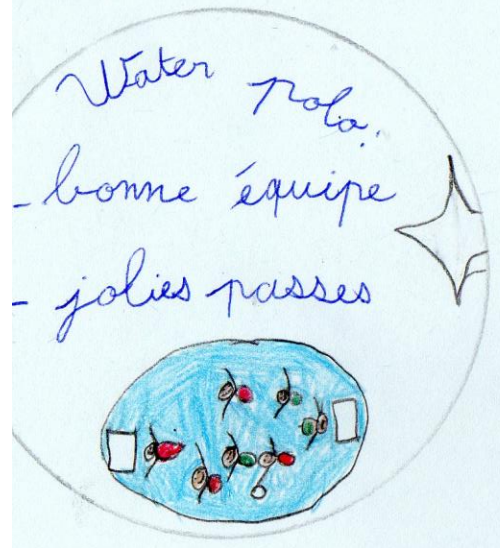 Water polo.
- bonne équipe
- jolies passes